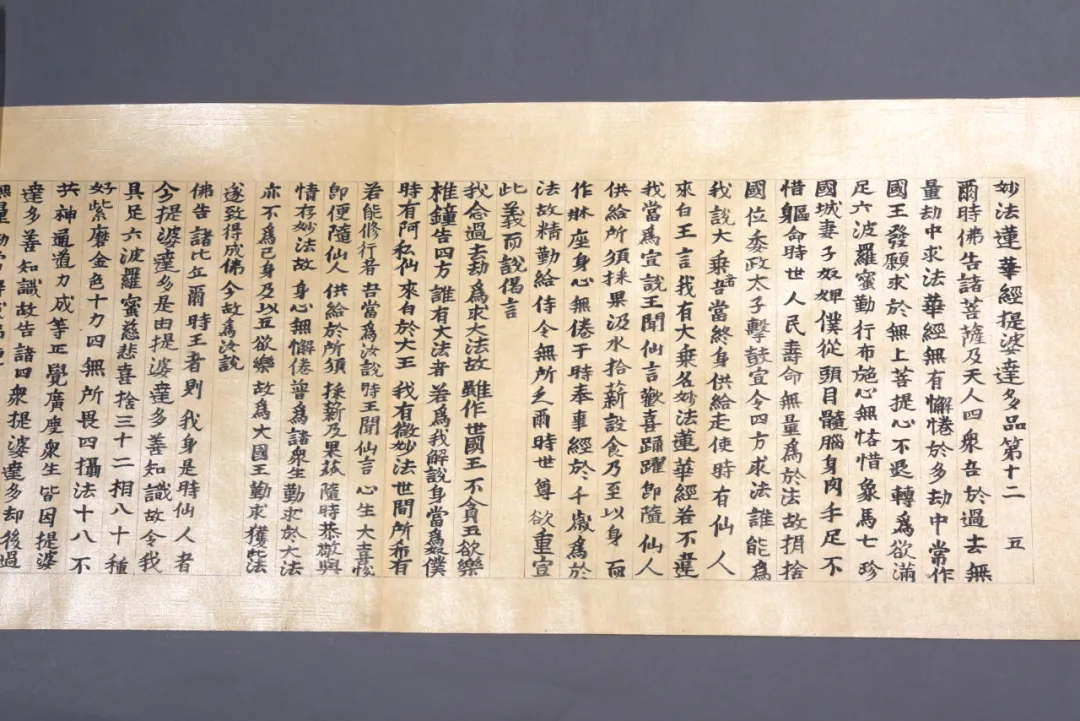 妙法蓮華經提婆達多品第十二 五
爾時佛告諸菩薩及天人四衆吾於過去無
量劫中求法華經無有懈惓於多劫中常作
國王發願求於無上菩提心不退轉爲欲滿
足六波羅蜜勤行布施心無悋惜象馬七珍
國城妻子奴婢僕從頭目髓腦身肉手足不
惜軀命時世人民壽命無量爲於法故捐捨
國位委政太子擊鼓宣令四方求法誰能爲
我說大乘者吾當終身供給走使時有仙人
來白王言我有大乘名妙法蓮華經若不違
我當爲宣說王聞仙言歡喜踊躍即隨仙人
供給所須採果汲水拾薪設食乃至以身而
作牀座身心無倦于時奉事經於千歲爲於
法故精勤給侍令無所乏爾時世尊欲重宣
此義而說偈言
我念過去劫 爲求大法故 雖作世國王 不貪五欲樂
椎鐘告四方 誰有大法者 若爲我解說 身當爲奴僕
時有阿私仙 來白於大王 我有微妙法 世間所希有
若能修行者 吾當爲汝說 時王聞仙言 心生大喜悅
即便隨仙人 供給於所須 採薪及果蓏 隨時恭敬與
情存妙法故 身心無懈倦 普爲諸衆生 勤求於大法
亦不爲己身 及以五欲樂 故爲大國王 勤求獲此法
遂致得成佛 今故爲汝說
佛告諸比丘爾時王者則我身是時仙人者
今提婆達多是由提婆達多善知識故令我
具足六波羅蜜慈悲喜捨三十二相八十種
好紫磨金色十力四無所畏四攝法十八不
共神通道力成等正覺廣度衆生皆因提婆
達多善知識故告諸四衆提婆達多却後過
無量劫當得